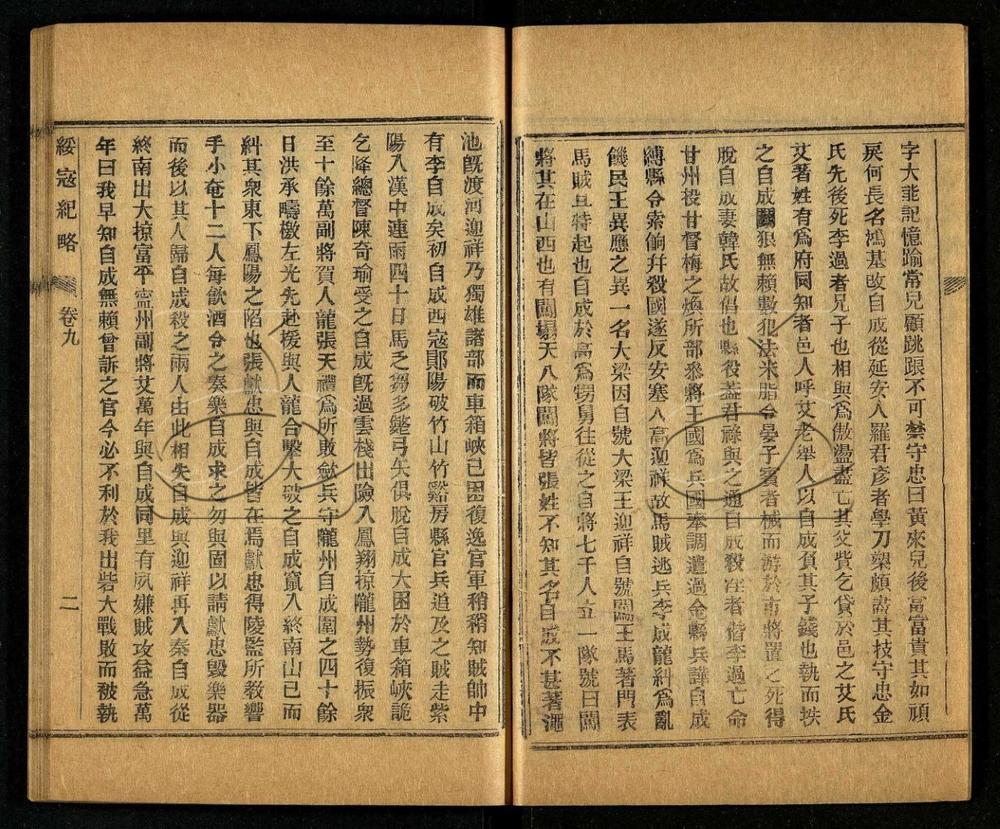 字大能記憶踰常兒顧跳踉不可禁守忠曰黃來兒後富富貴其如頑
戾何長名鴻基改自成從延安人羅君彥者學刀槊頗盡其技守忠金
氏先後死李過者兄子也相與為傲盪盡亡其父貲乞貸於邑之艾氏
艾著姓有為府同知者邑人呼艾老舉人以自成負其子錢也執而抶
之自成鬬狠無賴數犯法米脂令晏子賓者械而游於市將置之死得
脫自成妻韓氏故倡也縣役葢君祿與之通自成殺淫者偕李過亡命
甘州投甘督梅之煥所部叅將王國為兵國奉調遣過金縣兵譁自成
縛縣令索餉幷殺國遂反安塞人高迎祥故馬賊逃兵李成龍糾為亂
饑民王異應之異一名大梁因自號大梁王迎祥自號闖王馬著門表
馬賊且特起也自成於高為甥舅往從之自將七千人立一隊號曰闖
將其在山西也有闖塌天八隊闖將皆張姓不知其名自成不甚著澠
池既渡河迎祥乃獨雄諸部而車箱峽已困復逸官軍稍稍知賊帥中
有李自成矣初自成西寇鄖陽破竹山竹谿房縣官兵追及之賊走紫
陽入漢中連雨四十日馬乏芻多斃弓矢俱脫自成大困於車箱峽詭
乞降總督陳奇瑜受之自成既過雲棧出險入鳳翔掠隴州勢復振衆
至十餘萬副將賀人龍張天禮為所敗斂兵守隴州自成圍之四十餘
日洪承疇檄左光先赴援與人龍合擊大破之自成竄入終南山已而
糾其衆東下鳳陽之陷也張獻忠與自成皆在焉獻忠得陵監所敎響
手小奄十二人每飲酒令之奏樂自成求之勿與固以請獻忠毀樂器
而後以其人歸自成殺之兩人由此相失自成與迎祥再入秦自成從
終南出大掠富平寧州副將艾萬年與自成同里有夙嫌賊攻益急萬
年曰我早知自成無賴曾訴之官今必不利於我出砦大戰敗而被執
綏寇紀略 卷九 二